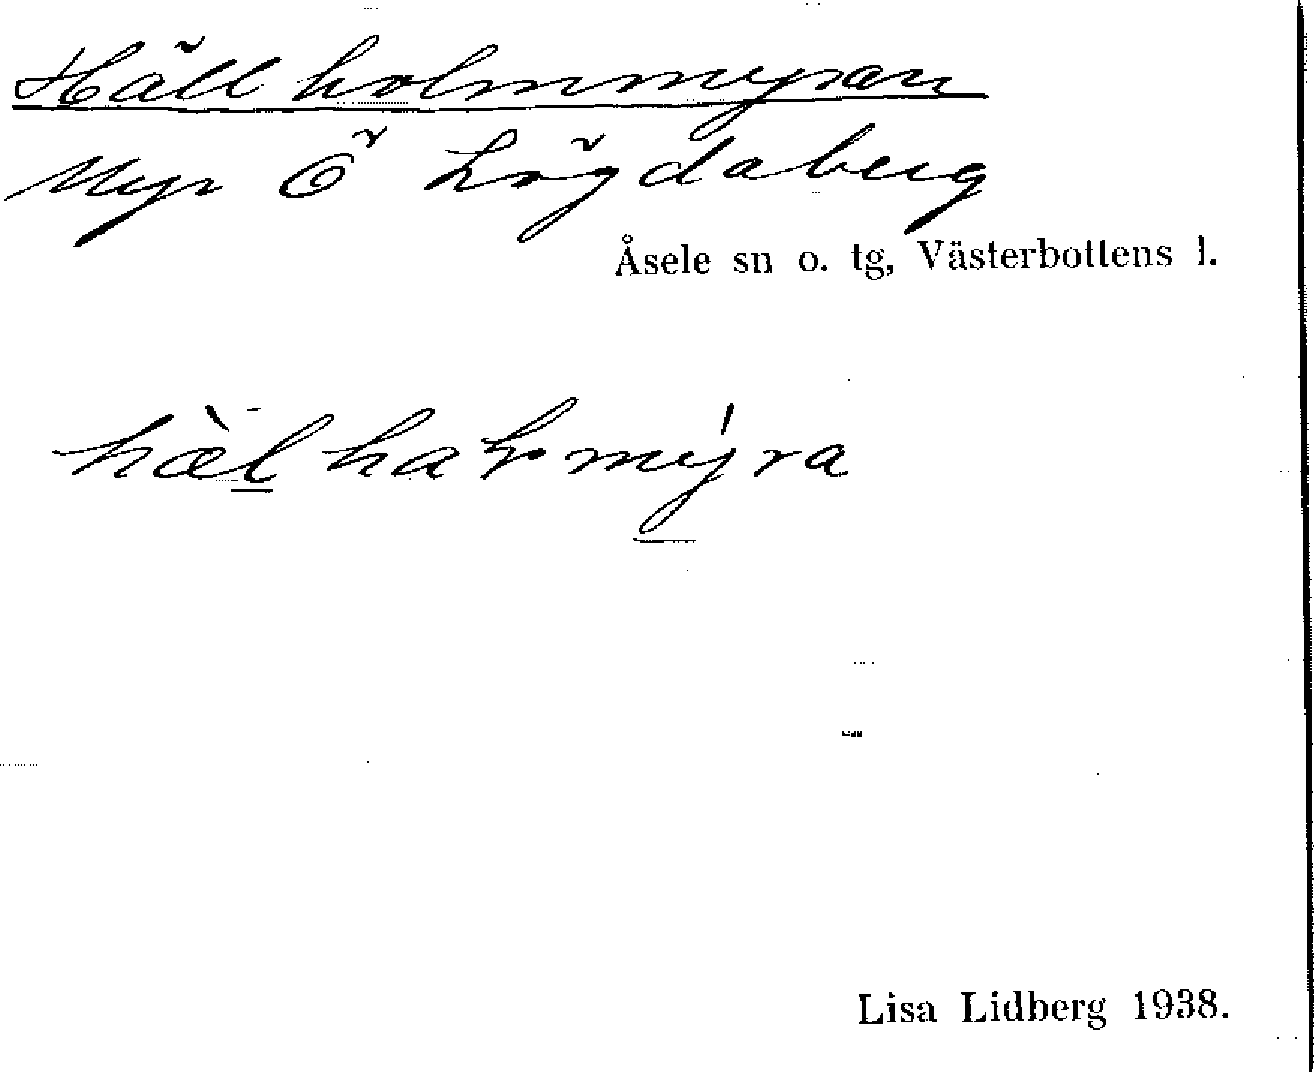 Hällholmmyran
Myr Ö Lögdaberg
Åsele sn o. tg, Västerbottens l.
Lisa Lidberg 1938.